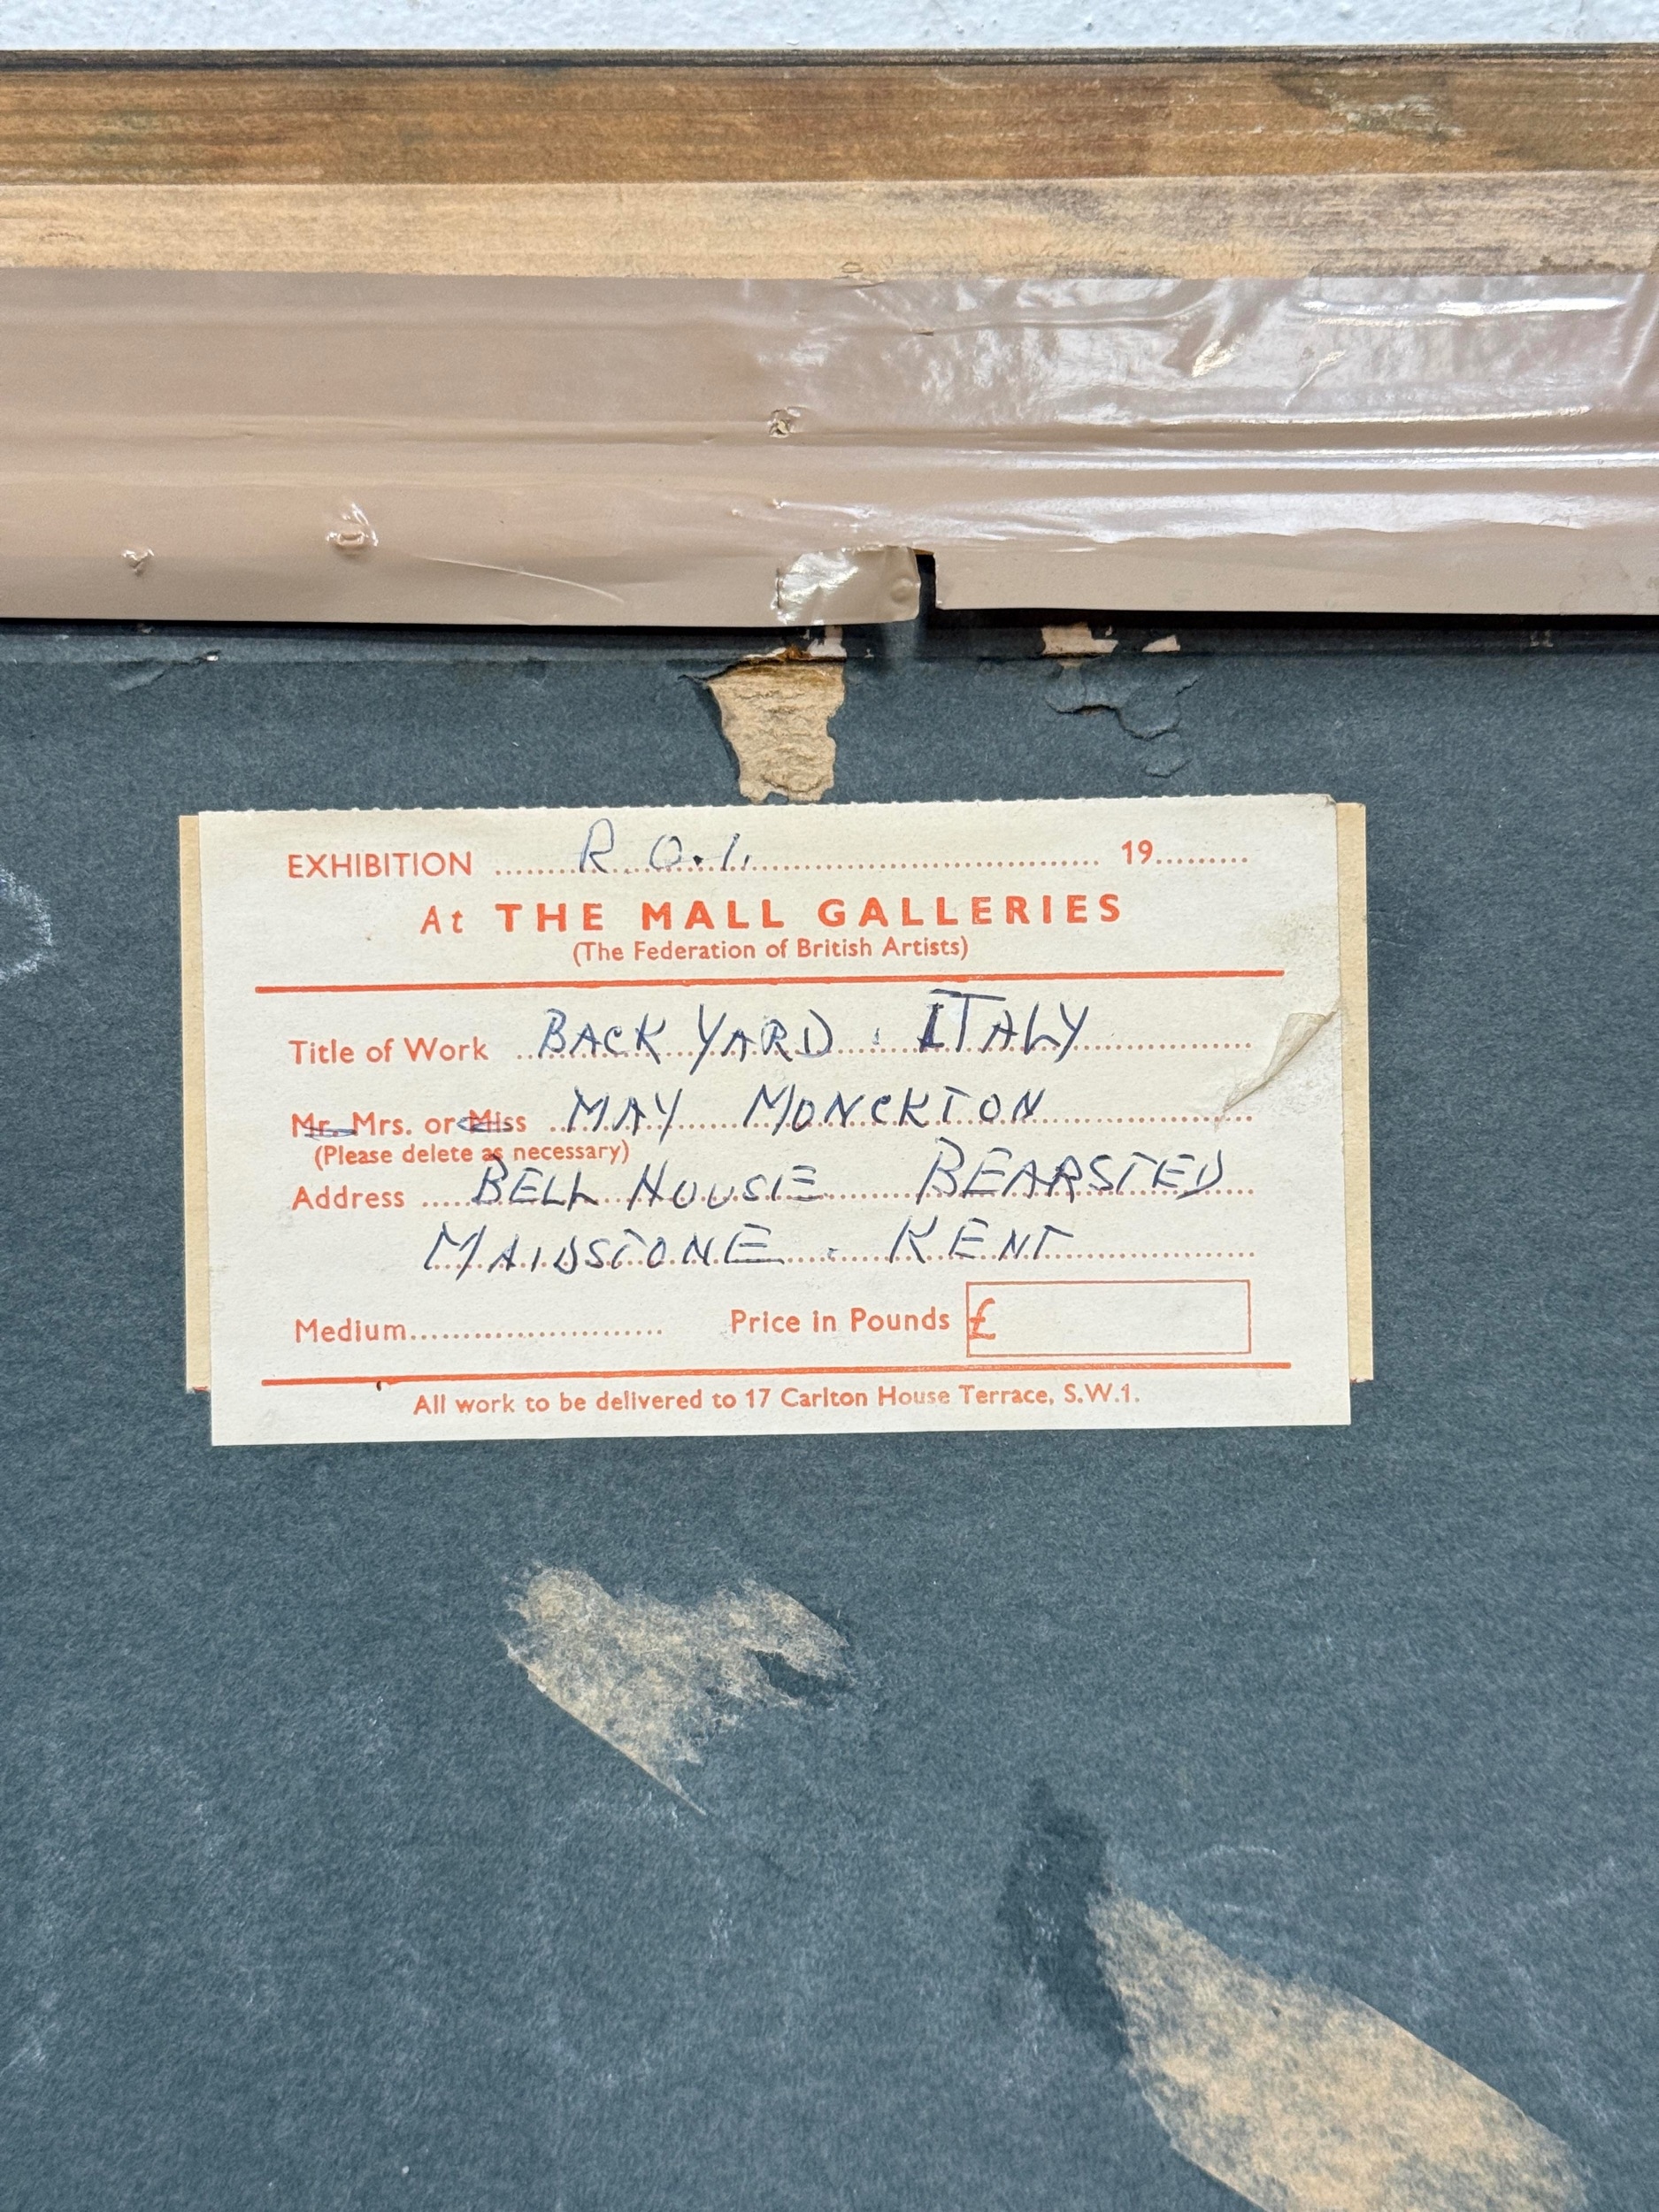 EXHIBITION R.O.I. 19
At THE MALL GALLERIES
(The Federation of British Artists)
Title of Work BACK YARD . ITALY
Mr. Mrs. or Miss MAY MONCKTON
(Please delete as necessary)
Address BELL HOUSE BEARSTED
MAIDSTONE . KENT
Medium Price in Pounds £
All work to be delivered to 17 Carlton House Terrace, S.W.1.